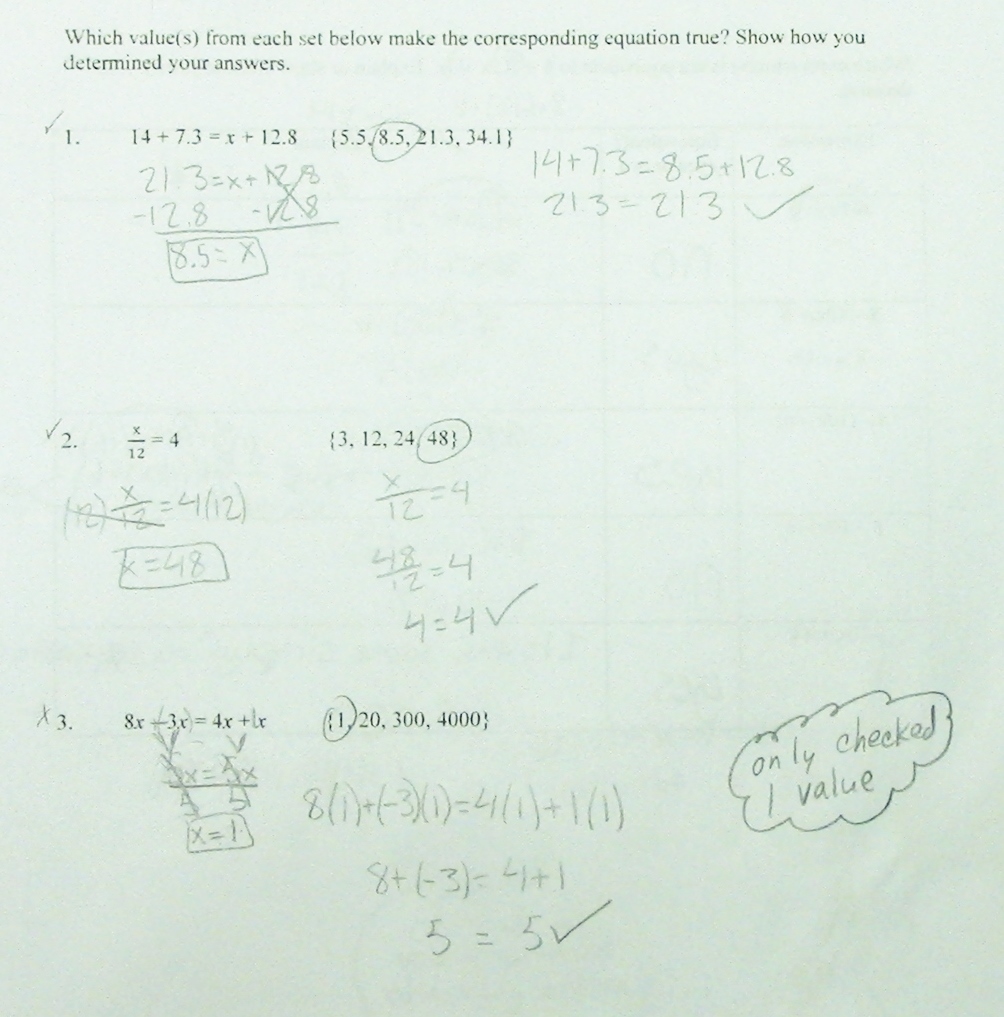 Which value(s) from each set below make the corresponding equation true? Show how you
determined your answers.
✓ 1. 14 + 7.3 = x + 12.8 {5.5, 8.5, 21.3, 34.1}
21.3=x+12.8
-12.8 -12.8
8.5= x
14+7.3=8.5+12.8
21.3=21.3 ✓
✓ 2. x/12 = 4 {3, 12, 24, 48}
(12) x/12 =4(12)
x=48
x/12 =4
48/12 =4
4=4 ✓
X 3. 8x + (-3x) = 4x + 1x {1, 20, 300, 4000}
5x = 5x
5 5
x=1
8(1)+(-3)(1)=4(1)+1(1)
8+(-3)=4+1
5 = 5 ✓
only checked
1 value